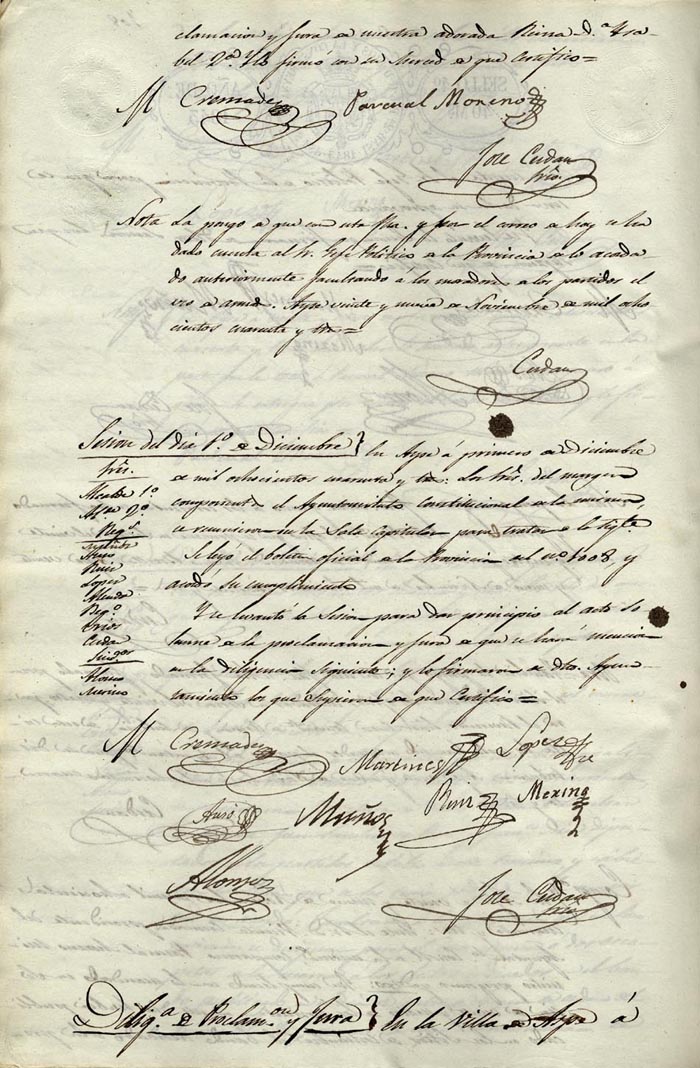 clamacion y Jura de nuestra adorada Reina D.ª Isa-
bel 2.ª y lo firmó con su Merced de que Certifico=
M Cremades Pascual Moreno
Jose Cerdan
Srio.
Nota La pongo de que con esta fha. y por el correo de hoy se ha
dado cuenta al Sr. Gefe Politico de la Provincia de lo acorda-
do anteriormente facultando á los moradores de los partidos el
uso de armas. Aspe veinte y nueve de Noviembre de mil ocho
cientos cuarenta y tres=
Cerdan
Sesion del dia 1.º de Diciembre} En Aspe á primero de Diciembre
Sres. de mil ochocientos cuarenta y tres: Los Sres. del margen
Alcalde 1.º componentes el Ayuntamiento Constitucional de la misma
2.º se reunieron en la Sala Capitular para tratar de lo sigte.
Reg.s
Se leyo el boletin oficial de la Provincia del n.º 1008, y
Ruiz acordó su cumplimiento
Lopez
Y se levantó la Sesion para dar principio al acto so
Cerdan lemne de la proclamacion y Jura de que se hará mencion
Sindicos en la diligencia siguiente; y lo firmaron de dho. Ayun-
Alonso tamiento los que supieron de que Certifico=
Merino
M Cremades Martinez Lopez
Muñoz Ruiz Mexina
Alonso Jose Cerdan
Srio.
Dilig.ª de Proclam.on y Jura} En la Villa de Aspe á